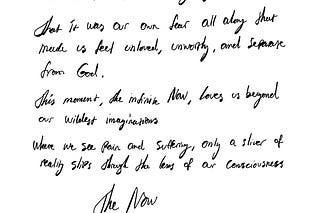 that it was our own fear all along that
made us feel unloved, unworthy, and separate
from God.
This moment, the infinite Now, loves us beyond
our wildest imaginations
Where we see pain and suffering, only a sliver of
reality slips through the lens of our consciousness
The Now